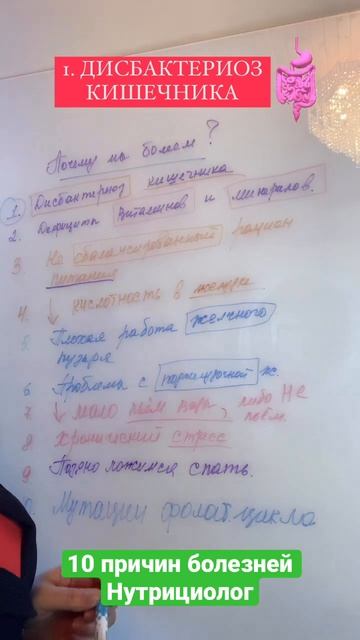 1. ДИСБАКТЕРИОЗ
КИШЕЧНИКА
Почему мы болеем?
1. Дисбактериоз кишечника
2. Дефициты витаминов и минералов.
3. Не сбалансированный рацион
питания
4. ↓ кислотность в желудке
5. Плохая работа желчного
пузыря
6. Проблемы с поджелудочной ж.
7. ↓ мало пьём воды, либо не
пьём.
8. Хронический стресс
9. Поздно ложимся спать.
0. Мутации фолат. цикла
10 причин болезней
Нутрициолог